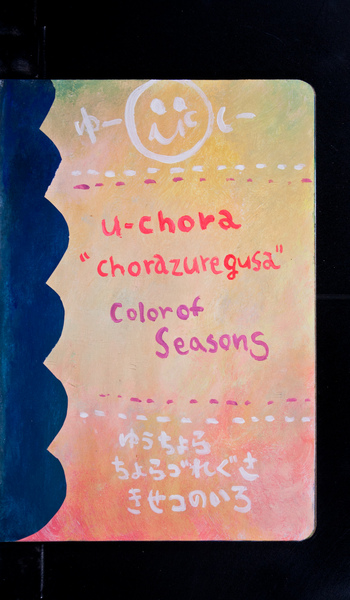 ゆー じー
u-chora
"chorazuregusa"
color of
Seasons
ゆうちょら
ちょらづれぐさ
きせつのいろ